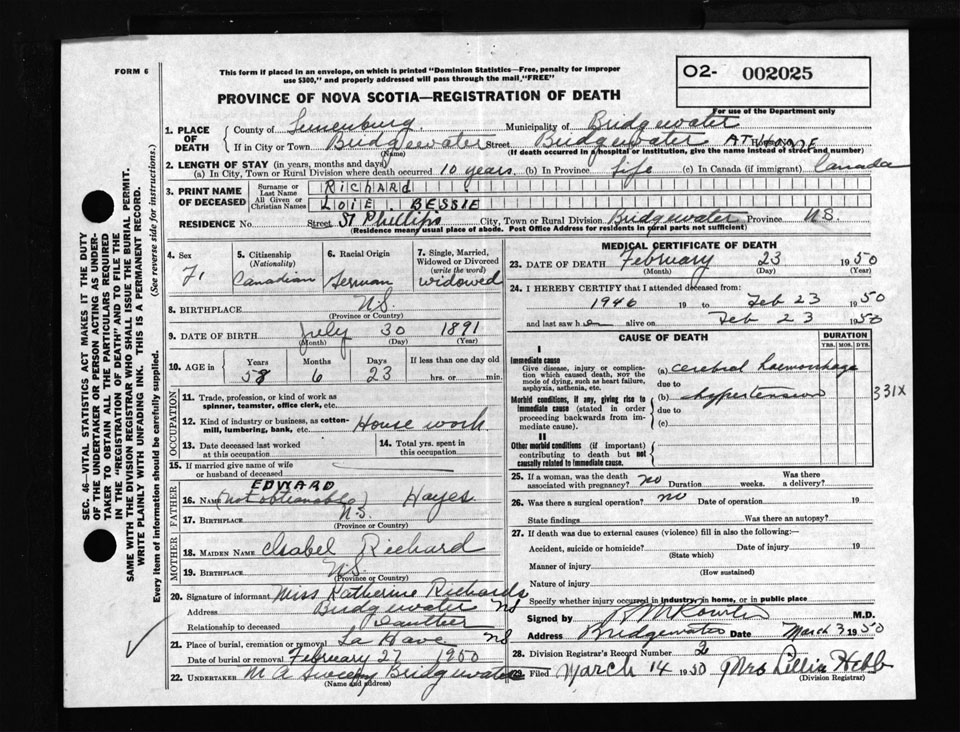 FORM 6
This form if placed in an envelope, on which is printed "Dominion Statistics—Free, penalty for improper
use $300," and properly addressed will pass through the mail, "FREE"
O2- 002025
For use of the Department only
PROVINCE OF NOVA SCOTIA—REGISTRATION OF DEATH
1. PLACE OF DEATH
County of Lunenburg Municipality of Bridgewater
If in City or Town Bridgewater Street Bridgewater AT HOME
(Name) (If death occurred in a hospital or institution, give the name instead of street and number)
2. LENGTH OF STAY (in years, months and days)
(a) In City, Town or Rural Division where death occurred 10 years. (b) In Province life (c) In Canada (if immigrant) Canada
3. PRINT NAME OF DECEASED
Surname or Last Name RICHARD
All Given or Christian Names LOIE BESSIE
RESIDENCE No. Street St Phillips City, Town or Rural Division Bridgewater Province N.S.
(Residence means usual place of abode. Post Office Address for residents in rural parts not sufficient)
4. Sex F.
5. Citizenship (Nationality) Canadian
6. Racial Origin German
7. Single, Married, Widowed or Divorced (write the word) widowed
8. BIRTHPLACE N.S.
(Province or Country)
9. DATE OF BIRTH July 30 1891
(Month) (Day) (Year)
10. AGE in Years 58 Months 6 Days 23 If less than one day old hrs. or min.
OCCUPATION
11. Trade, profession, or kind of work as
spinner, teamster, office clerk, etc.
12. Kind of industry or business, as cotton-
mill, lumbering, bank, etc. House work
13. Date deceased last worked at this occupation
14. Total yrs. spent in this occupation
15. If married give name of wife
or husband of deceased
FATHER
EDWARD
16. NAME (not obtionable) Hayes
17. BIRTHPLACE N.S.
(Province or Country)
MOTHER
18. MAIDEN NAME Isabel Richard
19. BIRTHPLACE N.S.
(Province or Country)
20. Signature of informant Miss Katherine Richards
Address Bridgewater NS
Relationship to deceased
21. Place of burial, cremation or removal La Have NS
Date of burial or removal February 27 1950
22. UNDERTAKER M A Bridgewater
(Name and address)
MEDICAL CERTIFICATE OF DEATH
23. DATE OF DEATH February 23 1950
(Month) (Day) (Year)
24. I HEREBY CERTIFY that I attended deceased from:
1946 19 to Feb 23 1950
and last saw h alive on Feb 23 1950
CAUSE OF DEATH
DURATION
YRS. MOS. DYS.
I
Immediate cause
Give disease, injury or complica-
tion which caused death, NOT the
mode of dying, such as heart failure,
asphyxia, asthenia, etc.
(a) cerebral haemorrhage
due to
Morbid conditions, if any, giving rise to
immediate cause (stated in order
proceeding backwards from im-
mediate cause).
(b) hypertension
due to
(c)
331X
II
Other morbid conditions (if important)
contributing to death but not
causally related to immediate cause.
25. If a woman, was the death
associated with pregnancy? no Duration weeks. Was there a delivery?
26. Was there a surgical operation? no Date of operation 19
State findings Was there an autopsy?
27. If death was due to external causes (violence) fill in also following:
Accident, suicide or homicide? Date of injury 19
(State which)
Manner of injury
(How sustained)
Nature of injury
Specify whether injury occurred in industry, in home, or in public place
Signed by M.D.
Address Bridgewater Date March 3 1950
28. Division Registrar's Record Number 2
29. Filed March 14 1950 Mrs Lillia Hebb
(Division Registrar)
SEC. 46—VITAL STATISTICS ACT MAKES IT THE DUTY
OF THE UNDERTAKER OR PERSON ACTING AS UNDER-
TAKER TO OBTAIN ALL THE PARTICULARS REQUIRED
IN THE "REGISTRATION OF DEATH" AND TO FILE THE
SAME WITH THE DIVISION REGISTRAR WHO SHALL ISSUE THE BURIAL PERMIT.
WRITE PLAINLY WITH UNFADING INK. THIS IS A PERMANENT RECORD.
Every item of information should be carefully supplied. (See reverse side for instructions.)